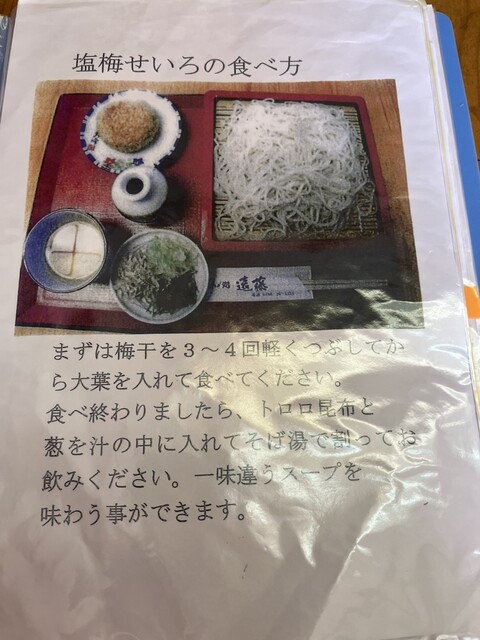 塩梅せいろの食べ方
遠藤
まずは梅干を３～４回軽くつぶしてか
ら大葉を入れて食べてください。
食べ終わりましたら、トロロ昆布と
葱を汁の中に入れてそば湯で割ってお
飲みください。一味違うスープを
味わう事ができます。